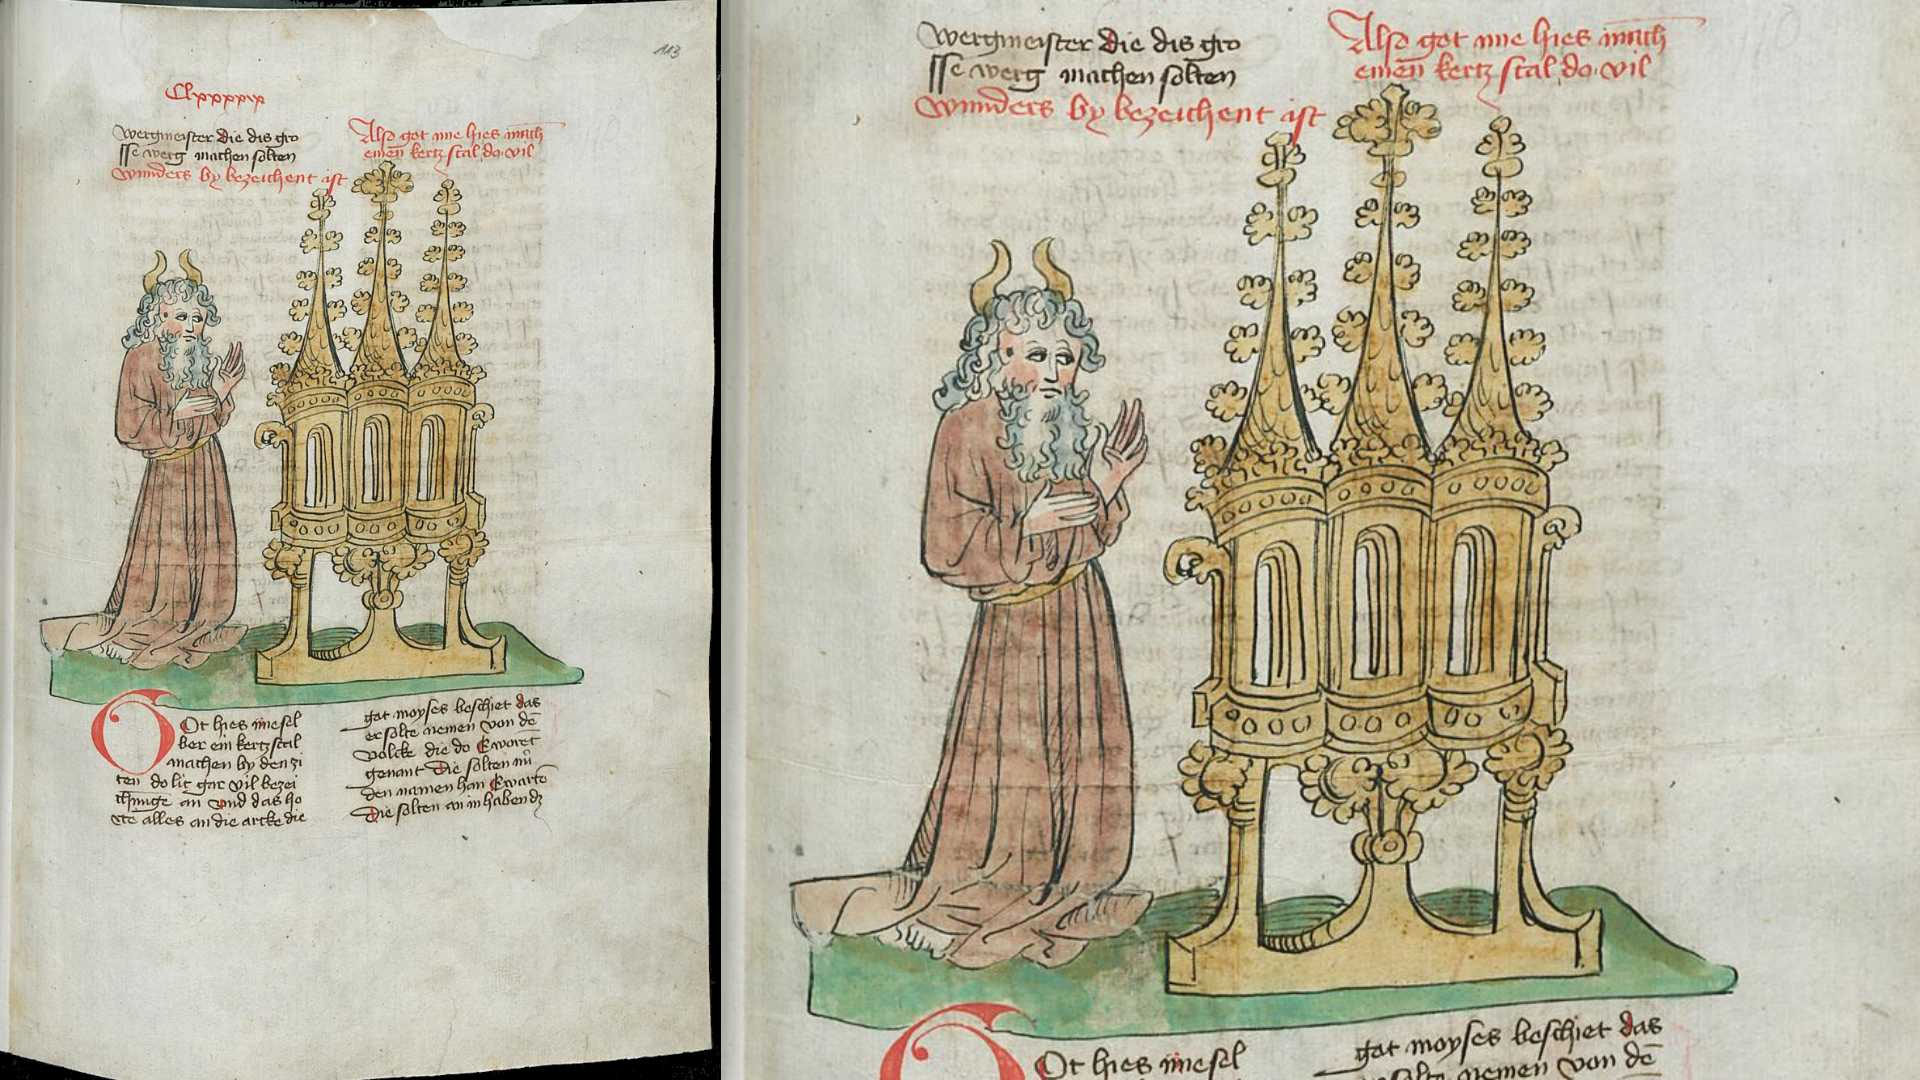 113
Clxxxxix
wergmeister die dis gro
sse werg machen solten
wunders by bezeichent ist
Also got me hies mach
einen kertzstal do vil
Ot hies mesel
ber ein kertzstal
machen by den zi
ten do lit gar vil bezei
chunge an vnd das ho
rte alles an die arcke die
got moyses beschiet das
er solte nemen von dē
volcke die do Ewaret
genant Die solten nū
den namen han Ewartē
Die solten an in haben dz
wergmeister die dis gro
sse werg machen solten
wunders by bezeichent ist
Also got me hies mach
einen kertzstal do vil
Ot hies mesel
got moyses beschiet das
er solte nemen von dē